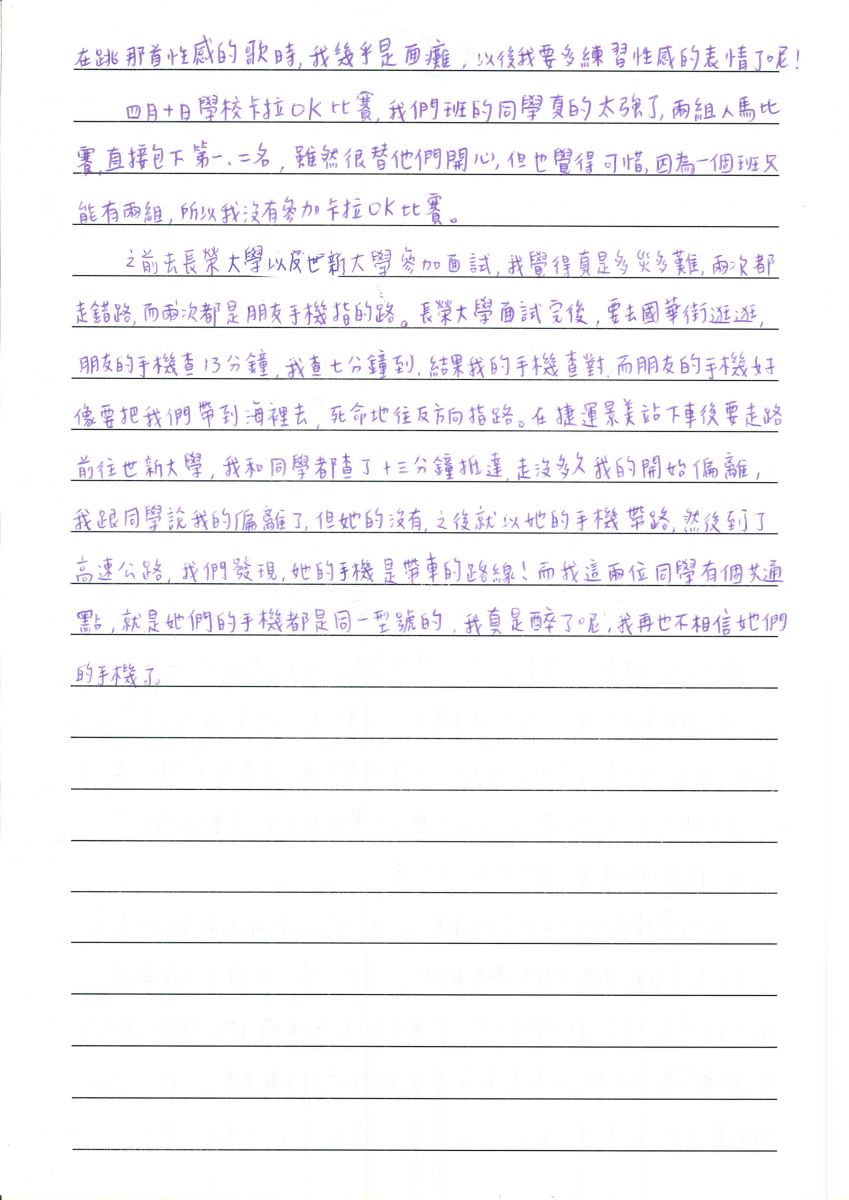 在跳那首性感的歌時,我幾乎是面癱,以後我要多練習性感的表情了呢!
四月十日學校卡拉OK比賽,我們班的同學真的太強了,兩組人馬比
賽,直接包下第一、二名,雖然很替他們開心,但也覺得可惜,因為一個班只
能有兩組,所以我沒有參加卡拉OK比賽。
之前去長榮大學以及世新大學參加面試,我覺得真是多災多難,兩次都
走錯路,而兩次都是朋友手機指的路。長榮大學面試完後,要去國華街逛逛,
朋友的手機查13分鐘,我查七分鐘到,結果我的手機查對,而朋友的手機好
像要把我們帶到海裡去,死命地往反方向指路。在捷運景美站下車後要走路
前往世新大學,我和同學都查了十三分鐘抵達,走沒多久我的開始偏離,
我跟同學說我的偏離了,但她的沒有,之後就以她的手機帶路,然後到了
高速公路,我們發現,她的手機是帶車的路線!而我這兩位同學有個共通
點,就是她們的手機都是同一型號的,我真是醉了呢,我再也不相信她們
的手機了。